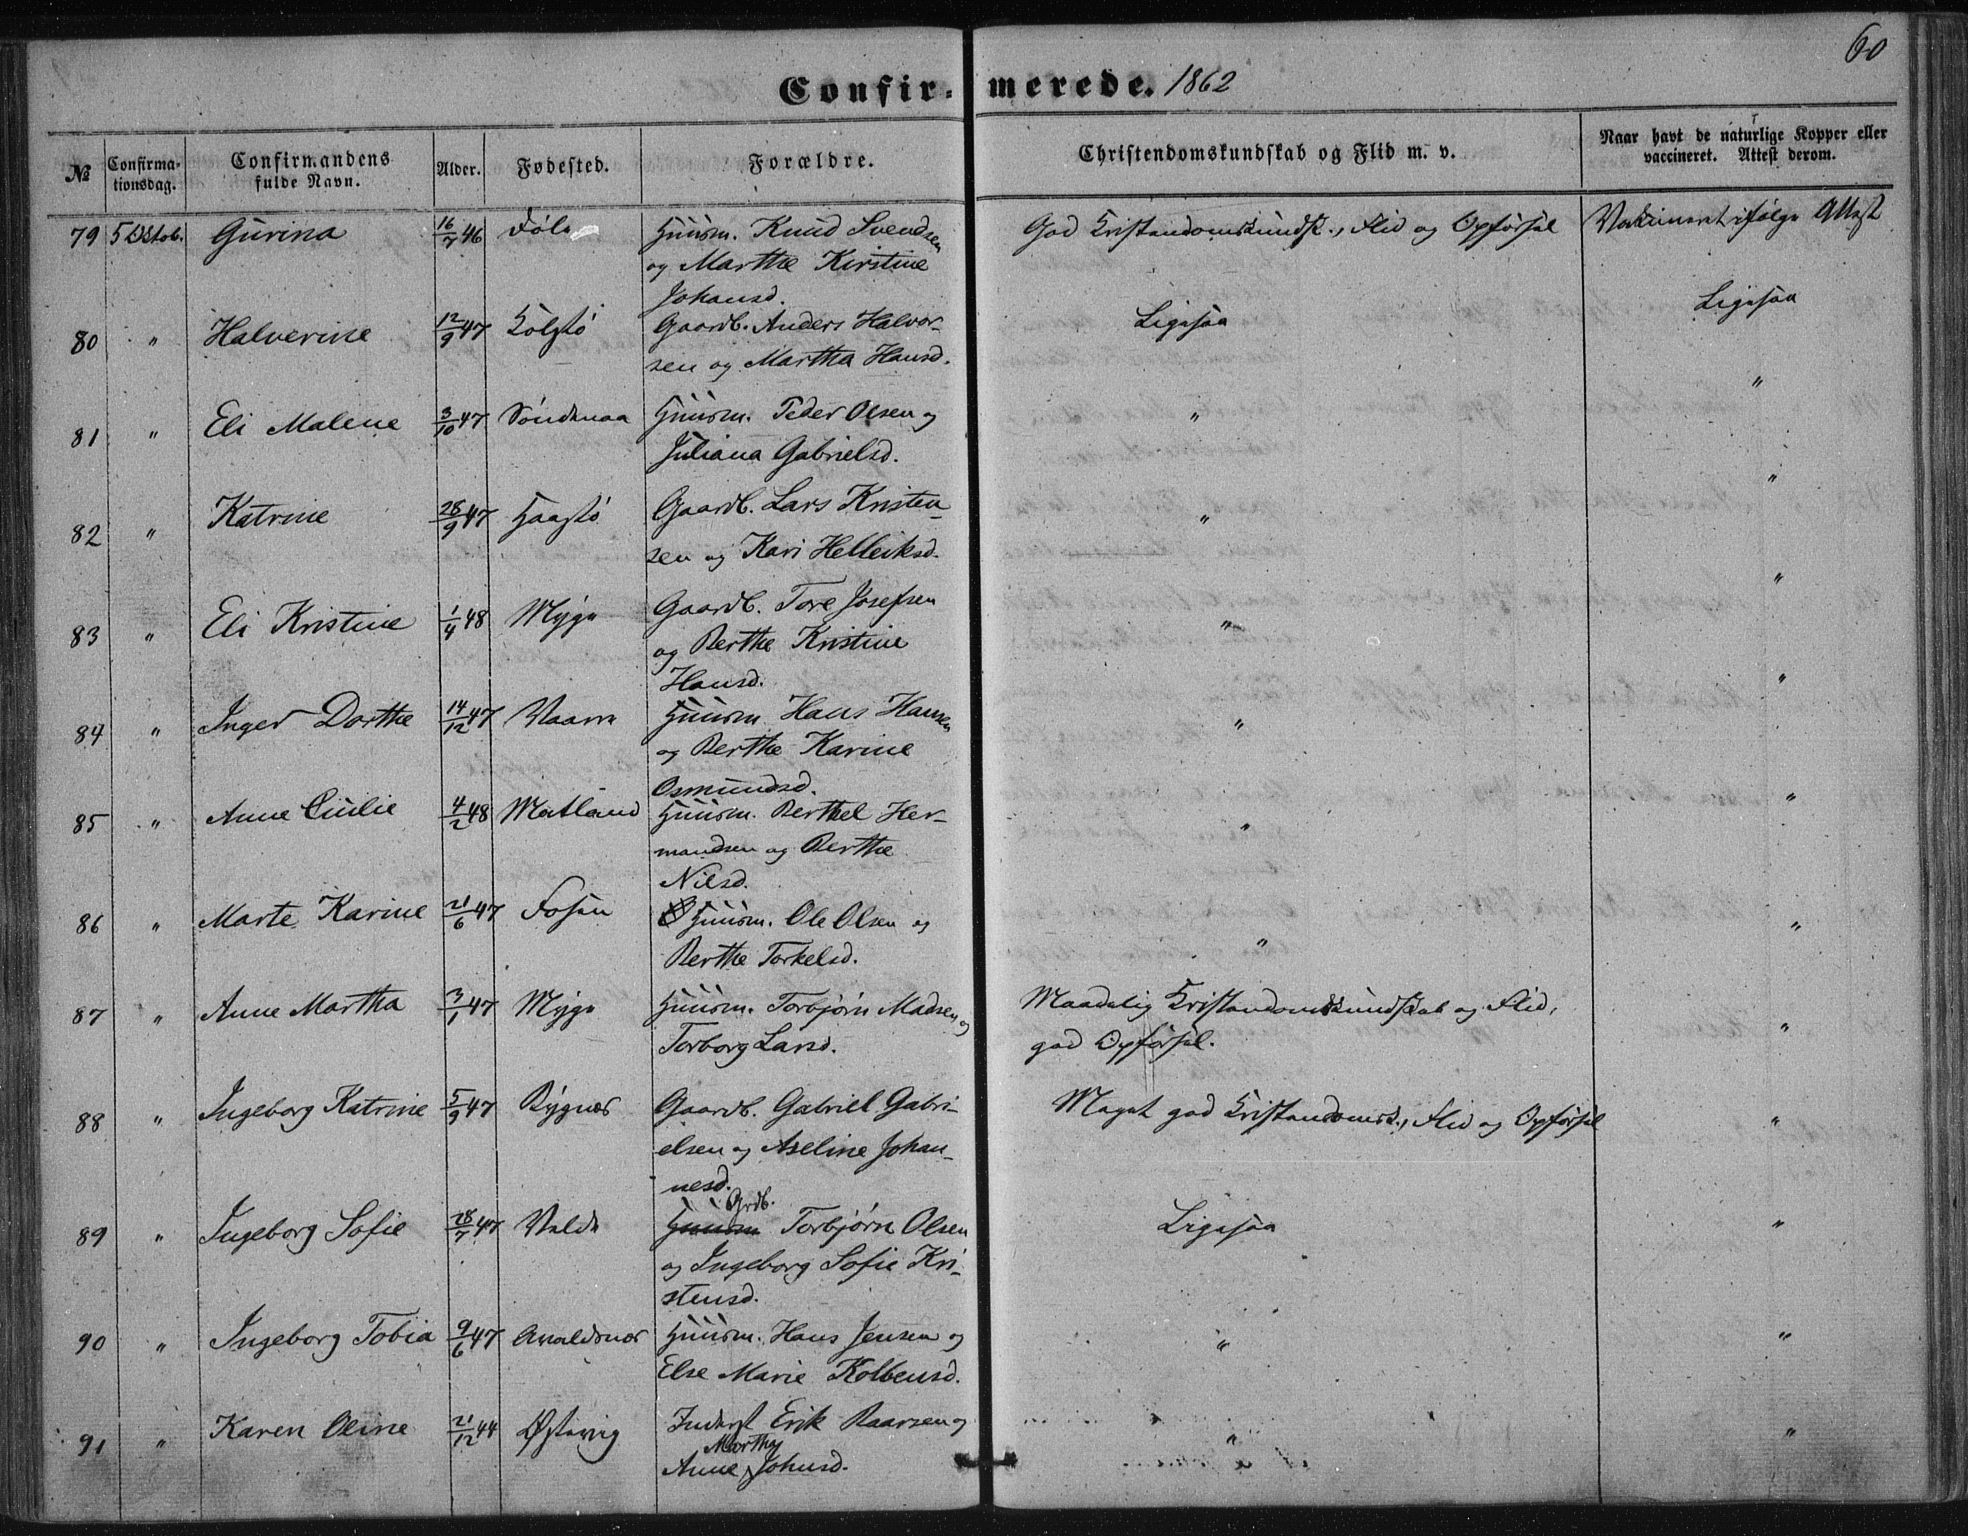 60
Confirmerede. 1862
№ Confirmationsdag. Confirmandens fulde Navn. Alder. Fødested. Forældre. Christendomskundskab og Flid m. v. Naar havt de naturlige Kopper eller vaccineret. Attest derom.
79 5 Oktob. Gurina 16/7 46 Huusm. Knud Svendsen God Kristendomskundsk., Flid og Opførsel Vakcineret ifølge Attest
og Marthe Kirstine
Johansd.
80 " Halverine 12/9 47 Kolstø Gaardb. Anders Halvor- Ligesaa Ligesaa
sen og Martha Hansd.
81 " Eli Malene 3/10 47 Søndenaa Huusm. Peder Olsen og " "
Juliana Gabrielsd.
82 " Katrine 28/9 47 Haastø Gaardb. Lars Kristen- " "
sen og Kari Helleiksd.
83 " Eli Kristine 1/4 48 Myge Gaardb. Tore Josefsen " "
og Berthe Kristine
Hansd.
84 " Inger Dorthe 14/12 47 Vaarn Huusm. Hans Hansen " "
og Berthe Karine
Osmundsd.
85 " Anne Cicilie 4/2 48 Matland Huusm. Berthel Her- " "
mandsen og Berthe
Nilsd.
86 " Marte Karine 21/6 47 Fosen Huusm. Ole Olsen og " "
Berthe Torkelsd.
87 " Anne Martha 3/1 47 Myge Huusm. Torbjørn Madsen og Maadelig Kristendomskundskab og Flid, "
Torborg Larsd. god Opførsel.
88 " Ingeborg Katrine 5/9 47 Bygnes Gaardb. Gabriel Gabri- Meget god Kristendomsk., Flid og Opførsel "
elsen og Aseline Johan-
nesd.
89 " Ingeborg Sofie 28/7 47 Velde Huusm Grdb. Torbjørn Olsen Ligesaa "
og Ingeborg Sofie Kri-
stensd.
90 " Ingeborg Tobia 9/6 47 Avaldsnes Huusm. Hans Jensen og " "
Else Marie Kolbensd.
91 " Karen Oline 21/12 44 Østevig Inderst Erik Baarsen og " "
Anne Martha Johnsd.